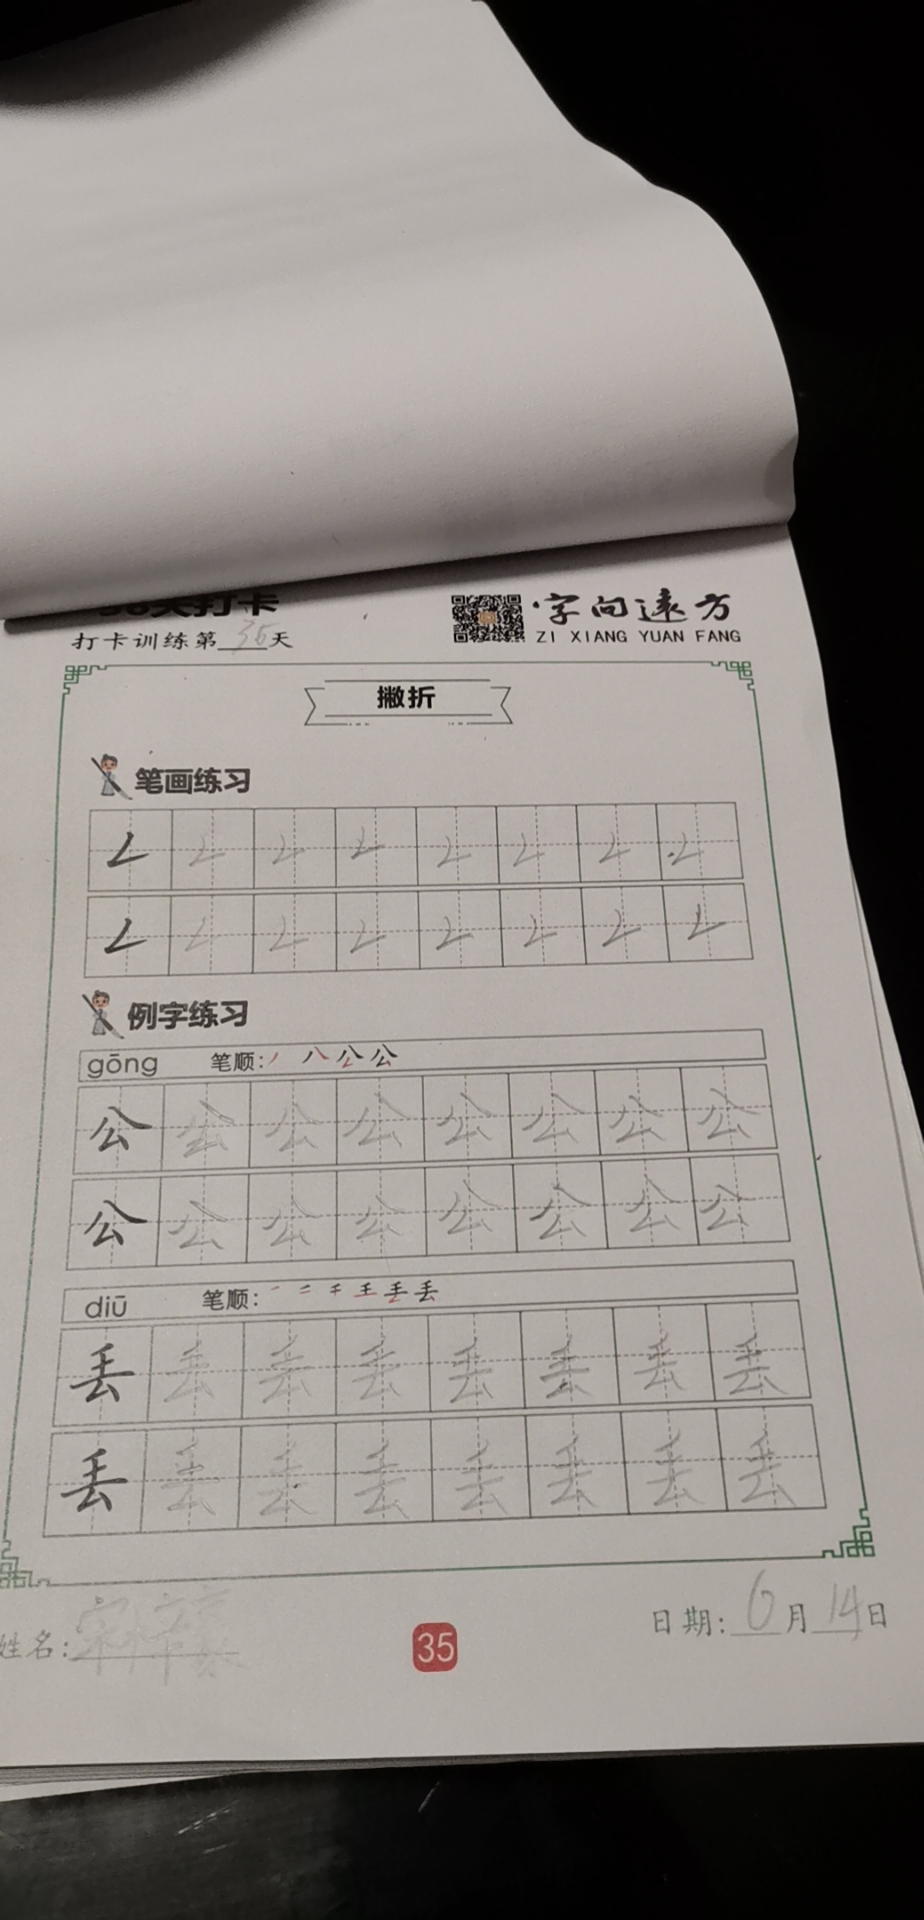 打卡训练第35天
字向远方
ZI XIANG YUAN FANG
撇折
笔画练习
例字练习
gōng 笔顺:丿 八 公 公
公 公 公 公 公 公 公 公
公 公 公 公 公 公 公 公
diū 笔顺:一 二 千 王 丢 丢
丢 丢 丢 丢 丢 丢 丢 丢
丢 丢 丢 丢 丢 丢 丢 丢
姓名:
35
日期:6月14日